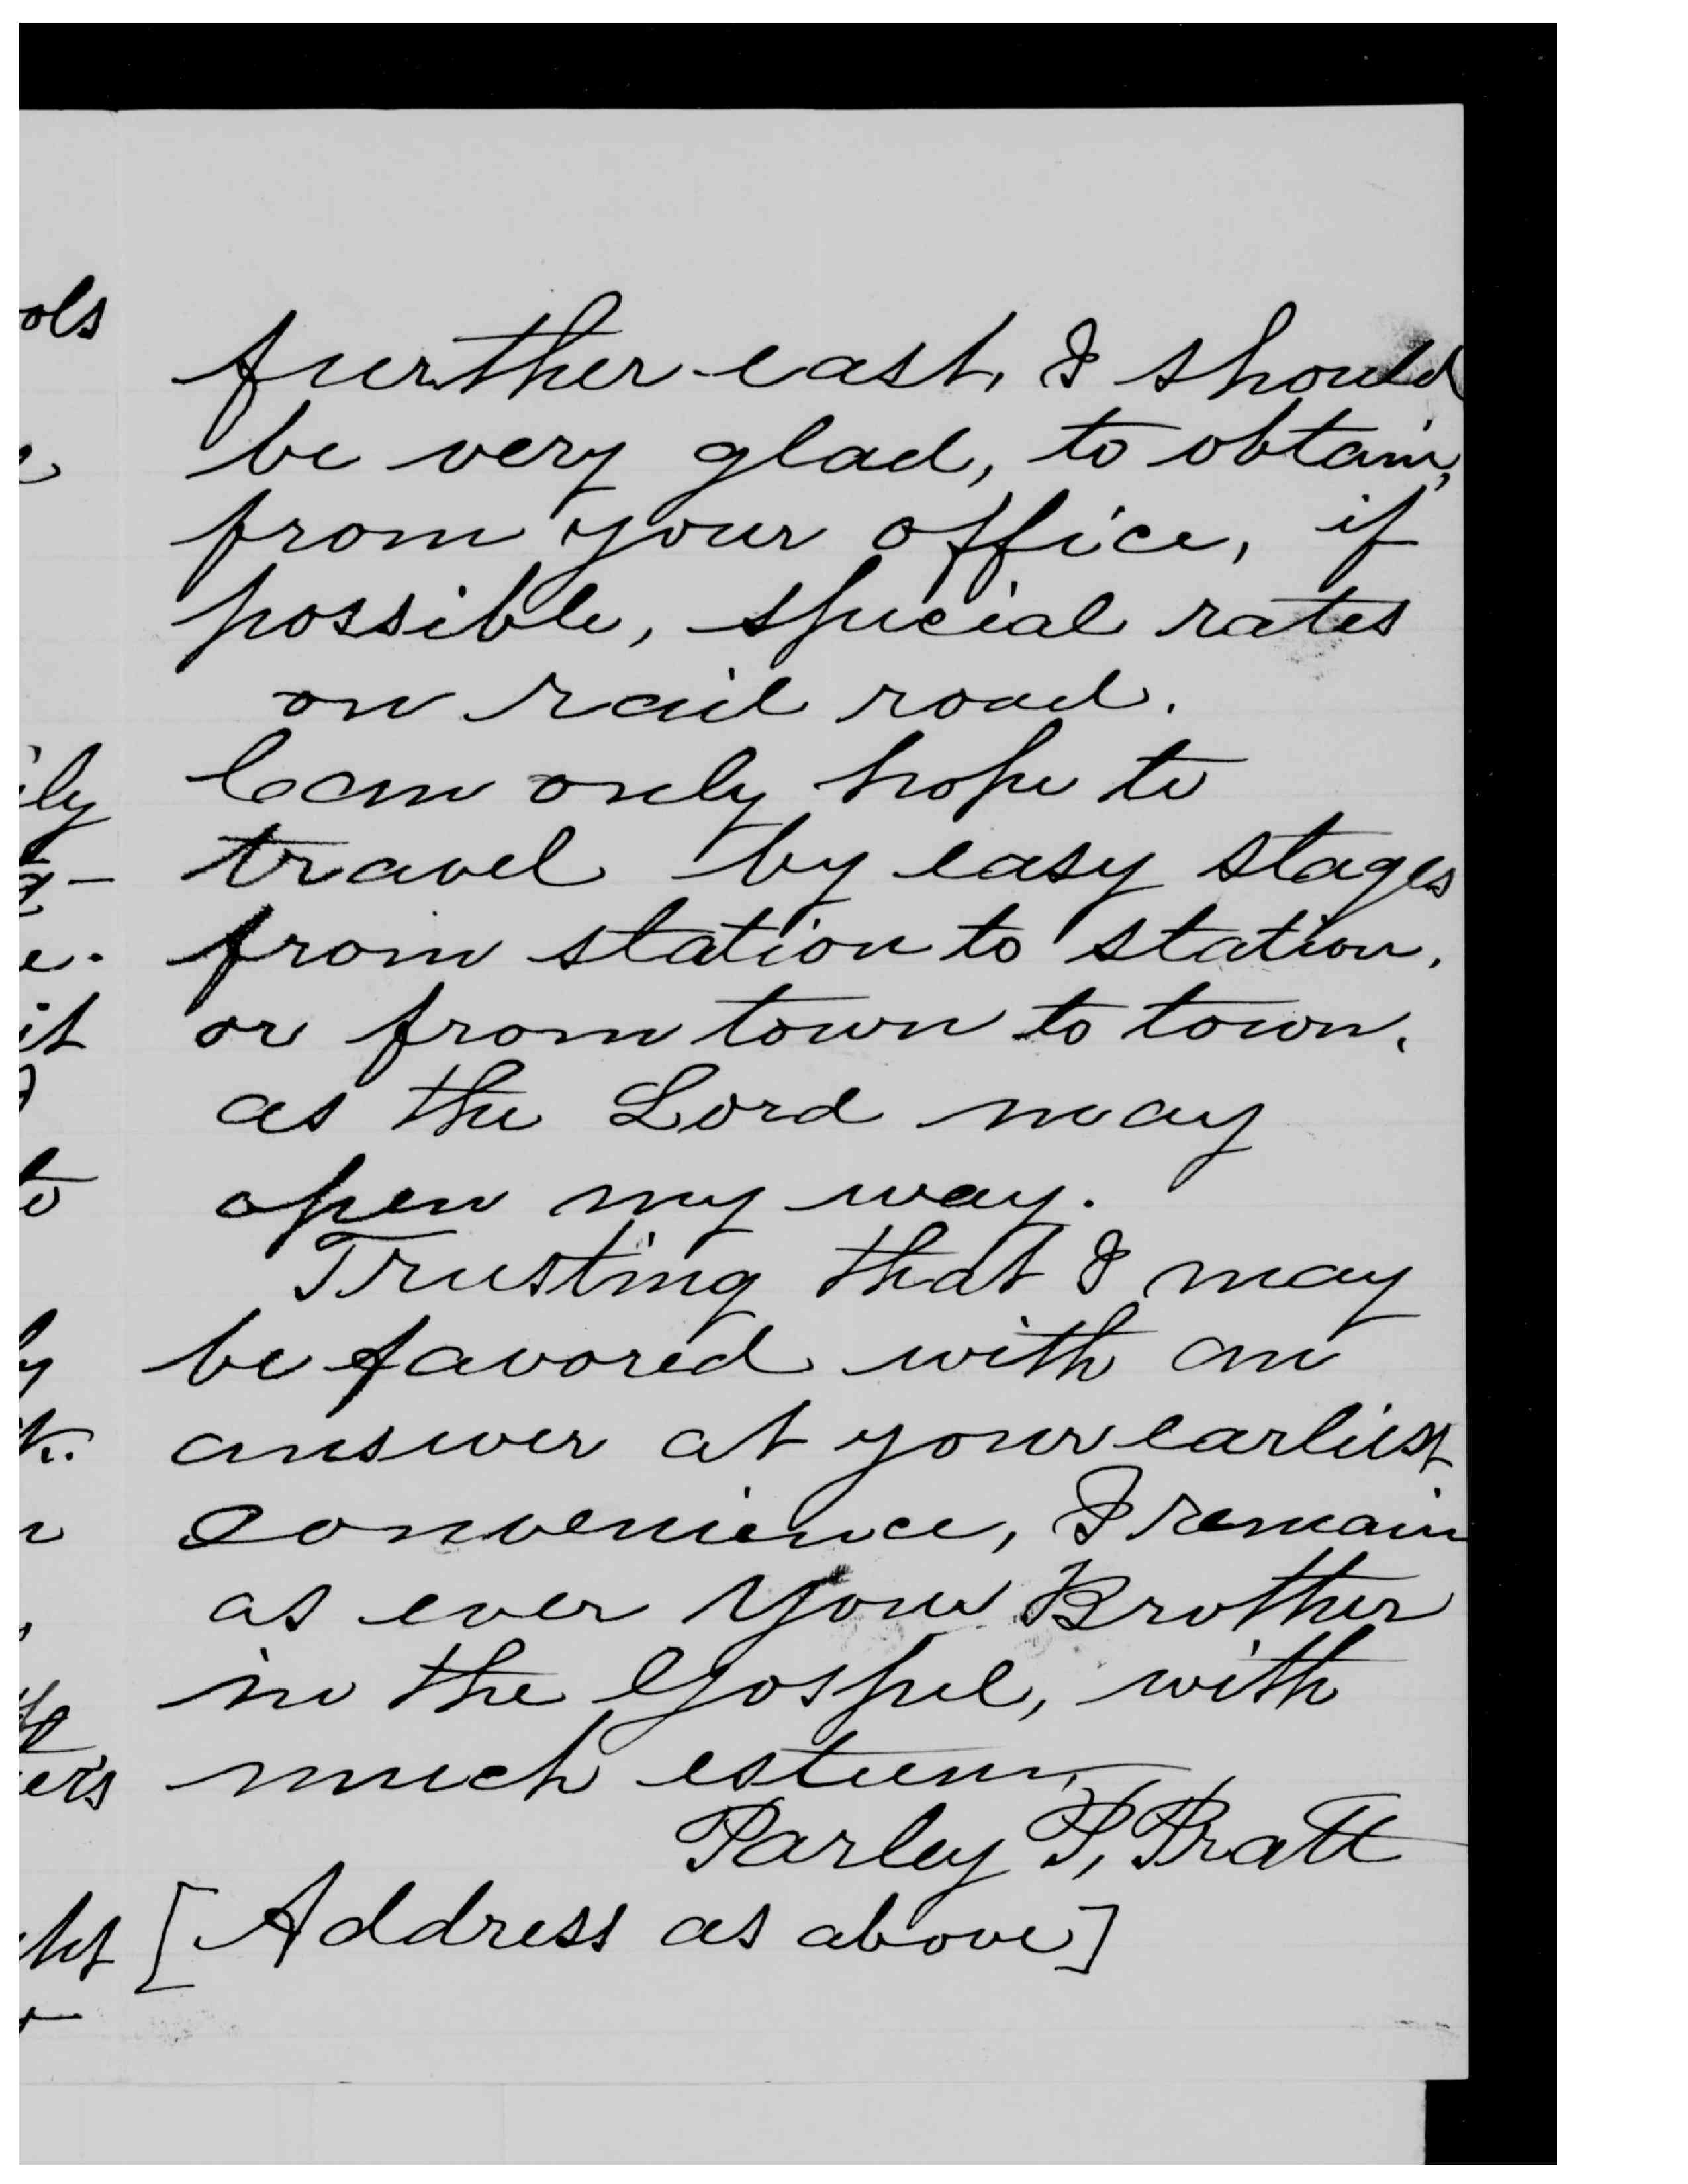 further east, I should
be very glad, to obtain,
from your office, if
possible, special rates
on rail road.
Can only hope to
travel by easy stages
from station to station,
or from town to town,
as the Lord may
open my way.
Trusting that I may
be favored with an
answer at your earliest
convenience, I remain
as ever your Brother
in the Gospel, with
much esteem,
Parley P. Pratt
[Address as above]
ols
ily
e.
it
to
ly
k.
ers
ht